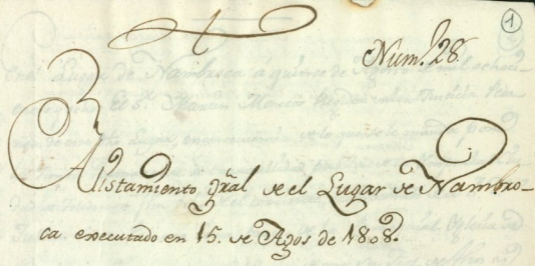 1
Num. 28.
Alistamiento gral de el Lugar de Nambro-
ca executado en 15. de Agos de 1808.